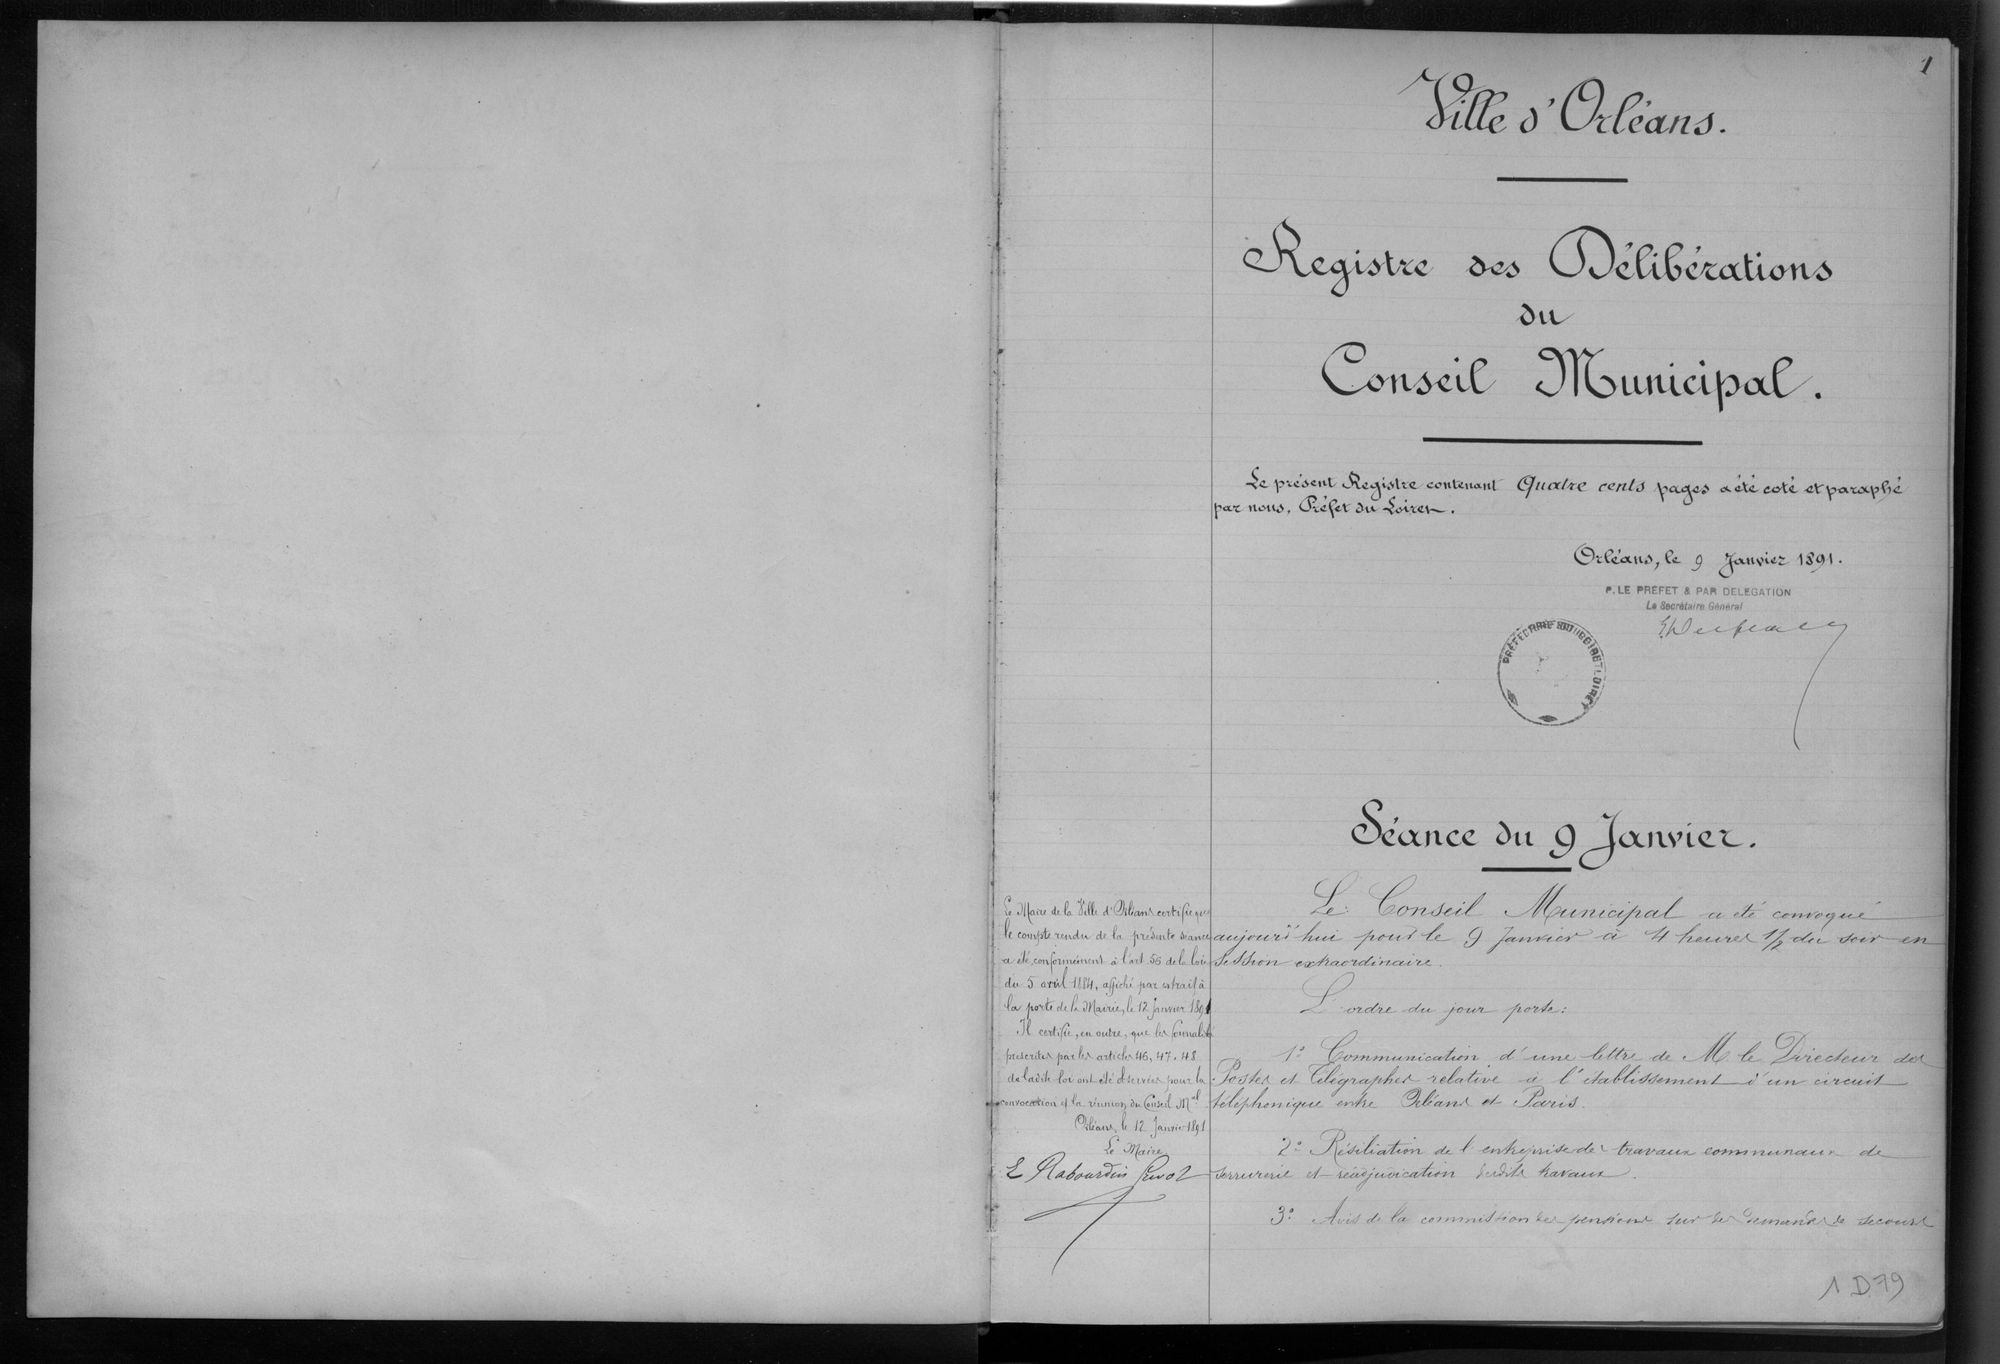 1
Ville d'Orléans.
Registre des Délibérations
du
Conseil Municipal.
Le présent Registre contenant Quatre cents pages a été coté et paraphé
par nous, Préfet du Loiret.
Orléans, le 9 Janvier 1891.
P. LE PRÉFET & PAR DELEGATION
Le Secrétaire Général
PRÉFECTURE DU LOIRET
Séance du 9 Janvier.
Le Maire de la Ville d'Orléans certifie que
le compte rendu de la présente séance
a été, conformément à l'art 56 de la loi
du 5 avril 1884, affiché par extrait à
la porte de la Mairie, le 12 Janvier 1891
Il certifie, en outre, que les formalités
prescrites par les articles 46, 47, 48
de ladite loi ont été observées pour la
convocation et la réunion du Conseil Mal
Orléans, le 12 Janvier 1891
Le Maire
E Rabourdin Grivot
Le Conseil Municipal a été convoqué
aujourd'hui pour le 9 Janvier à 4 heures 1/2 du soir en
session extraordinaire.
L'ordre du jour porte:
1º Communication d'une lettre de M. le Directeur des
Postes et Télégraphes relative à l'établissement d'un circuit
téléphonique entre Orléans et Paris.
2º Résiliation de l'entreprise des travaux communaux de
serrurerie et réadjudication desdits travaux.
3º Avis de la commission des pensions sur des demandes de secours
1 D 79